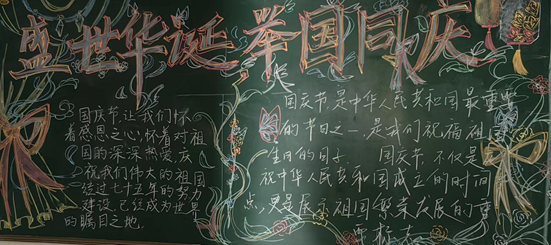 盛世华诞 举国同庆
国庆节,让我们怀
着感恩之心,怀着对祖
国的深深热爱,庆
祝我们伟大的祖国
经过七十五年的努力
建设,已经成为世界
的瞩目之地。
国庆节是中华人民共和国最重要
的节日之一,是我们祝福祖国
生日的日子。 国庆节,不仅是庆
祝中华人民共和国成立的时间
点,更是展示祖国繁荣发展的重
要标志